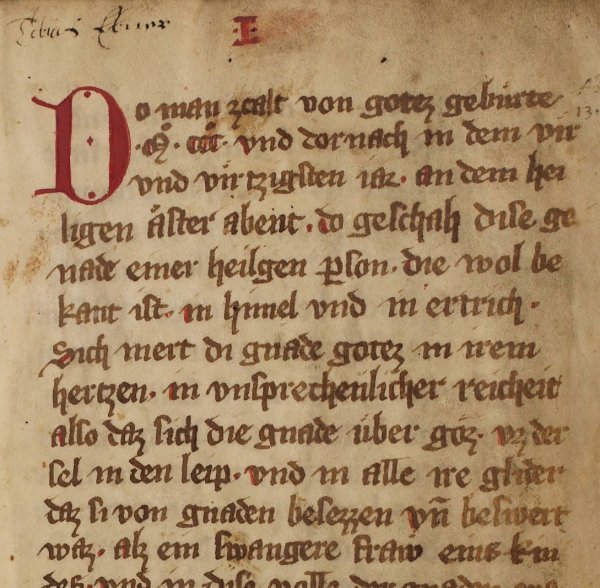 Tobias Ebner
I
Do man zalt von gotez geburte
·Mͦ· cccͦ· vnd dornach in dem vir
vnd virtzigsten iar· an dem hei
ligen aͤster abent· do geschah dise ge
nade einer heilgen ꝑson· die wol be
kant ist· in himel vnd in ertrich·
Sich mert di gnade gotez in irem
hertzen· in vnsprechenlicher reicheit
allso daz sich die gnade über goz· vz der
sel in den leip· vnd in alle ire glider
daz si von gnaden besezzen vn̄ beswert
waz· alz ein swangere fraw eins kin
des· vnd in dise volle der gnaden